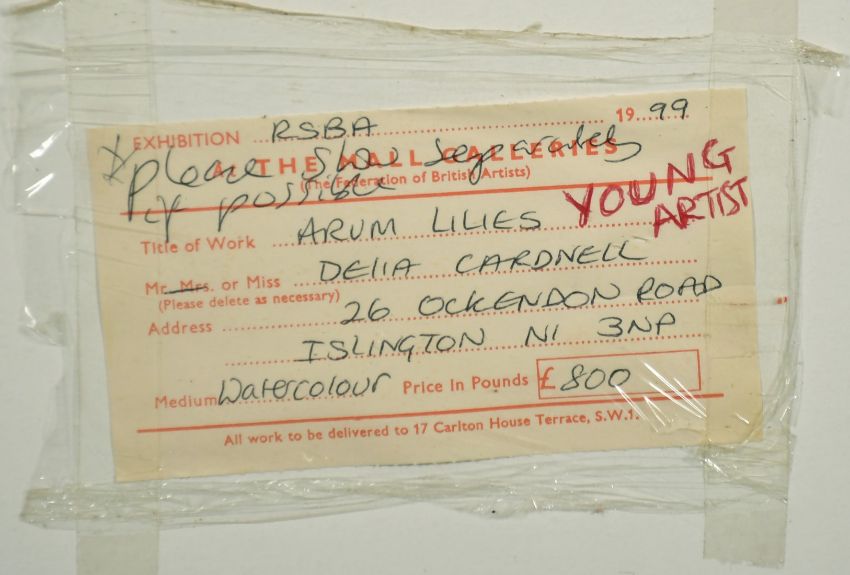 EXHIBITION RSBA 1999
* Please show separately
At THE MALL GALLERIES
if possible
(The Federation of British Artists)
YOUNG
ARTIST
Title of Work ARUM LILIES
Mr. Mrs. or Miss DELIA CARDNELL
(Please delete as necessary)
Address 26 OCKENDON ROAD
ISLINGTON N1 3NP
Medium Watercolour Price in Pounds £800
All work to be delivered to 17 Carlton House Terrace, S.W.1.